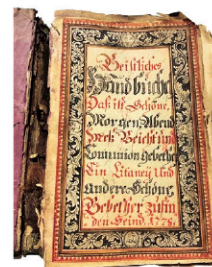 Geistliches
Handbüchel
Daß ist Schöne,
Morgen Abend
Beicht und
Communion Gebether
Ein Litaney Und
Andere Schöne,
Gebether zufin
den Seind. 1778.